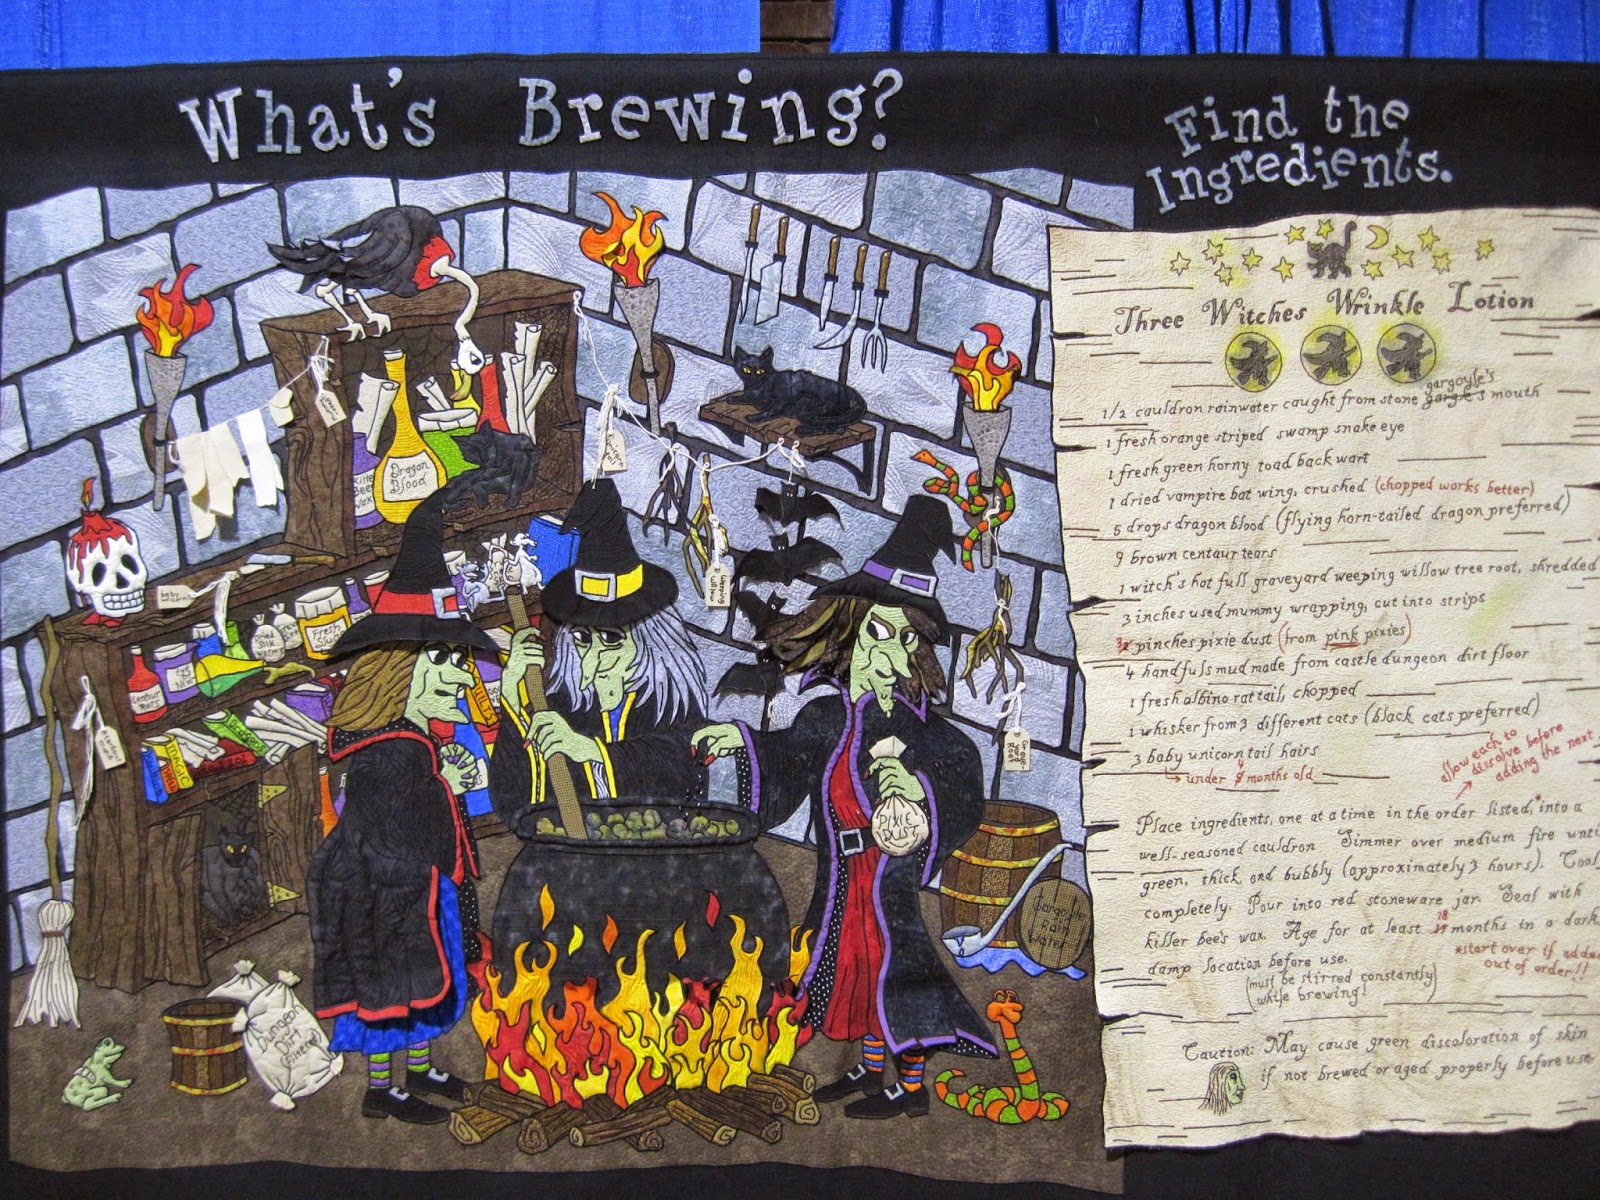 What's Brewing?
Find the
Ingredients.
Three Witches Wrinkle Lotion
gargoyle's
1/2 cauldron rainwater caught from stone gargle's mouth
1 fresh orange striped swamp snake eye
1 fresh green horny toad back wart
1 dried vampire bat wing, crushed (chopped works better)
5 drops dragon blood (flying horn-tailed dragon preferred)
9 brown centaur tears
1 witch's hot full graveyard weeping willow tree root, shredded
3 inches used mummy wrapping, cut into strips
3 pinches pixie dust (from pink pixies)
4 handfuls mud made from castle dungeon dirt floor
1 fresh albino rat tail, chopped
1 whisker from 3 different cats (black cats preferred)
3 baby unicorn tail hairs
under 4 months old
allow each to
dissolve before
adding the next
Place ingredients, one at a time in the order listed,* into a
well-seasoned cauldron Simmer over medium fire until
green, thick and bubbly (approximately 3 hours). Cool
completely. Pour into red stoneware jar. Seal with
killer bee's wax. Age for at least 18 months in a dark
damp location before use.
*start over if added
out of order!!
(must be stirred constantly)
while brewing!
Caution: May cause green discoloration of skin
if not brewed or aged properly before use.
Dragon
Blood
Killer
Bee
Wax
Dried
Silk
worms
Fresh
Slug
Centaur
Tears
MAGIC
Dungeon
Dirt
(Filtered)
PIXIE
DUST
Gargoyle
Rain
Water
Weeping
Willow
Grave-
yard
Root